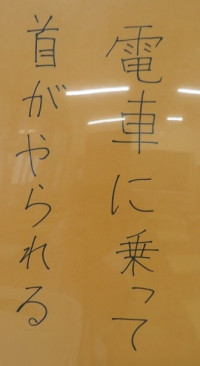 電車に乗って
首がやられる